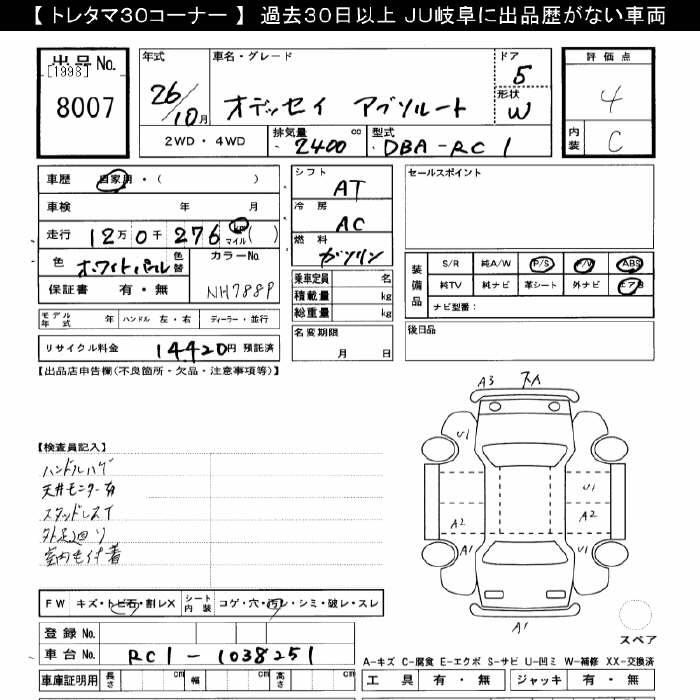 【 トレタマ30コーナー 】 過去30日以上 JU岐阜に出品歴がない車両
出品No. [1998] 8007
年式 26/10月
車名・グレード オデッセイ アブソルート
ドア 5
形状 W
2WD・4WD
排気量 2400 cc
型式 DBA-RC1
評価点 4
内装 C
車歴 自家用・( )
車検 年 月
走行 12万0千276 km マイル ( )
色 ホワイトパール 色替
カラーNo. NH788P
保証書 有・無
モデル年式 年 ハンドル 左・右 ディーラー・並行
リサイクル料金 14420円 預託済
シフト AT
冷房 AC
燃料 ガソリン
乗車定員 名
積載量 kg
総重量 kg
名変期限 月 日
セールスポイント
装備品 S/R 純A/W P/S P/W ABS
純TV 純ナビ 革シート 外ナビ エアB
ナビ型番:
後日品
【出品店申告欄(不良箇所・欠品・注意事項等)】
【検査員記入】
ハンドルハゲ
天井モニター有
スタッドレスT
外足廻り
室内毛付着
A3
U1
U1
A2
A2
A1
A1
A1
スペア
FW キズ・トビ石・割レX
シート内装 コゲ・穴・汚レ・シミ・破レ・スレ
登録No.
車台No. RC1-1038251
車庫証明用 長さ cm 幅 cm 高さ cm
A-キズ C-腐食 E-エクボ S-サビ U-凹ミ W-補修 XX-交換済
工具 有・無 ジャッキ 有・無